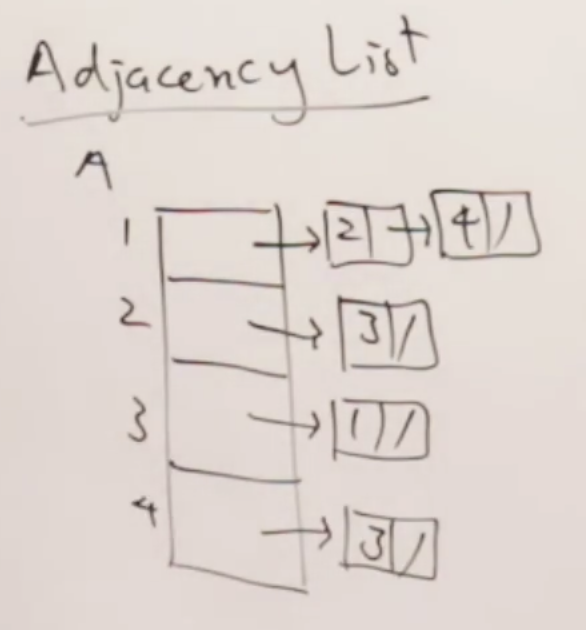 Adjacency List
A
1 2 4 /
2 3 /
3 1 /
4 3 /